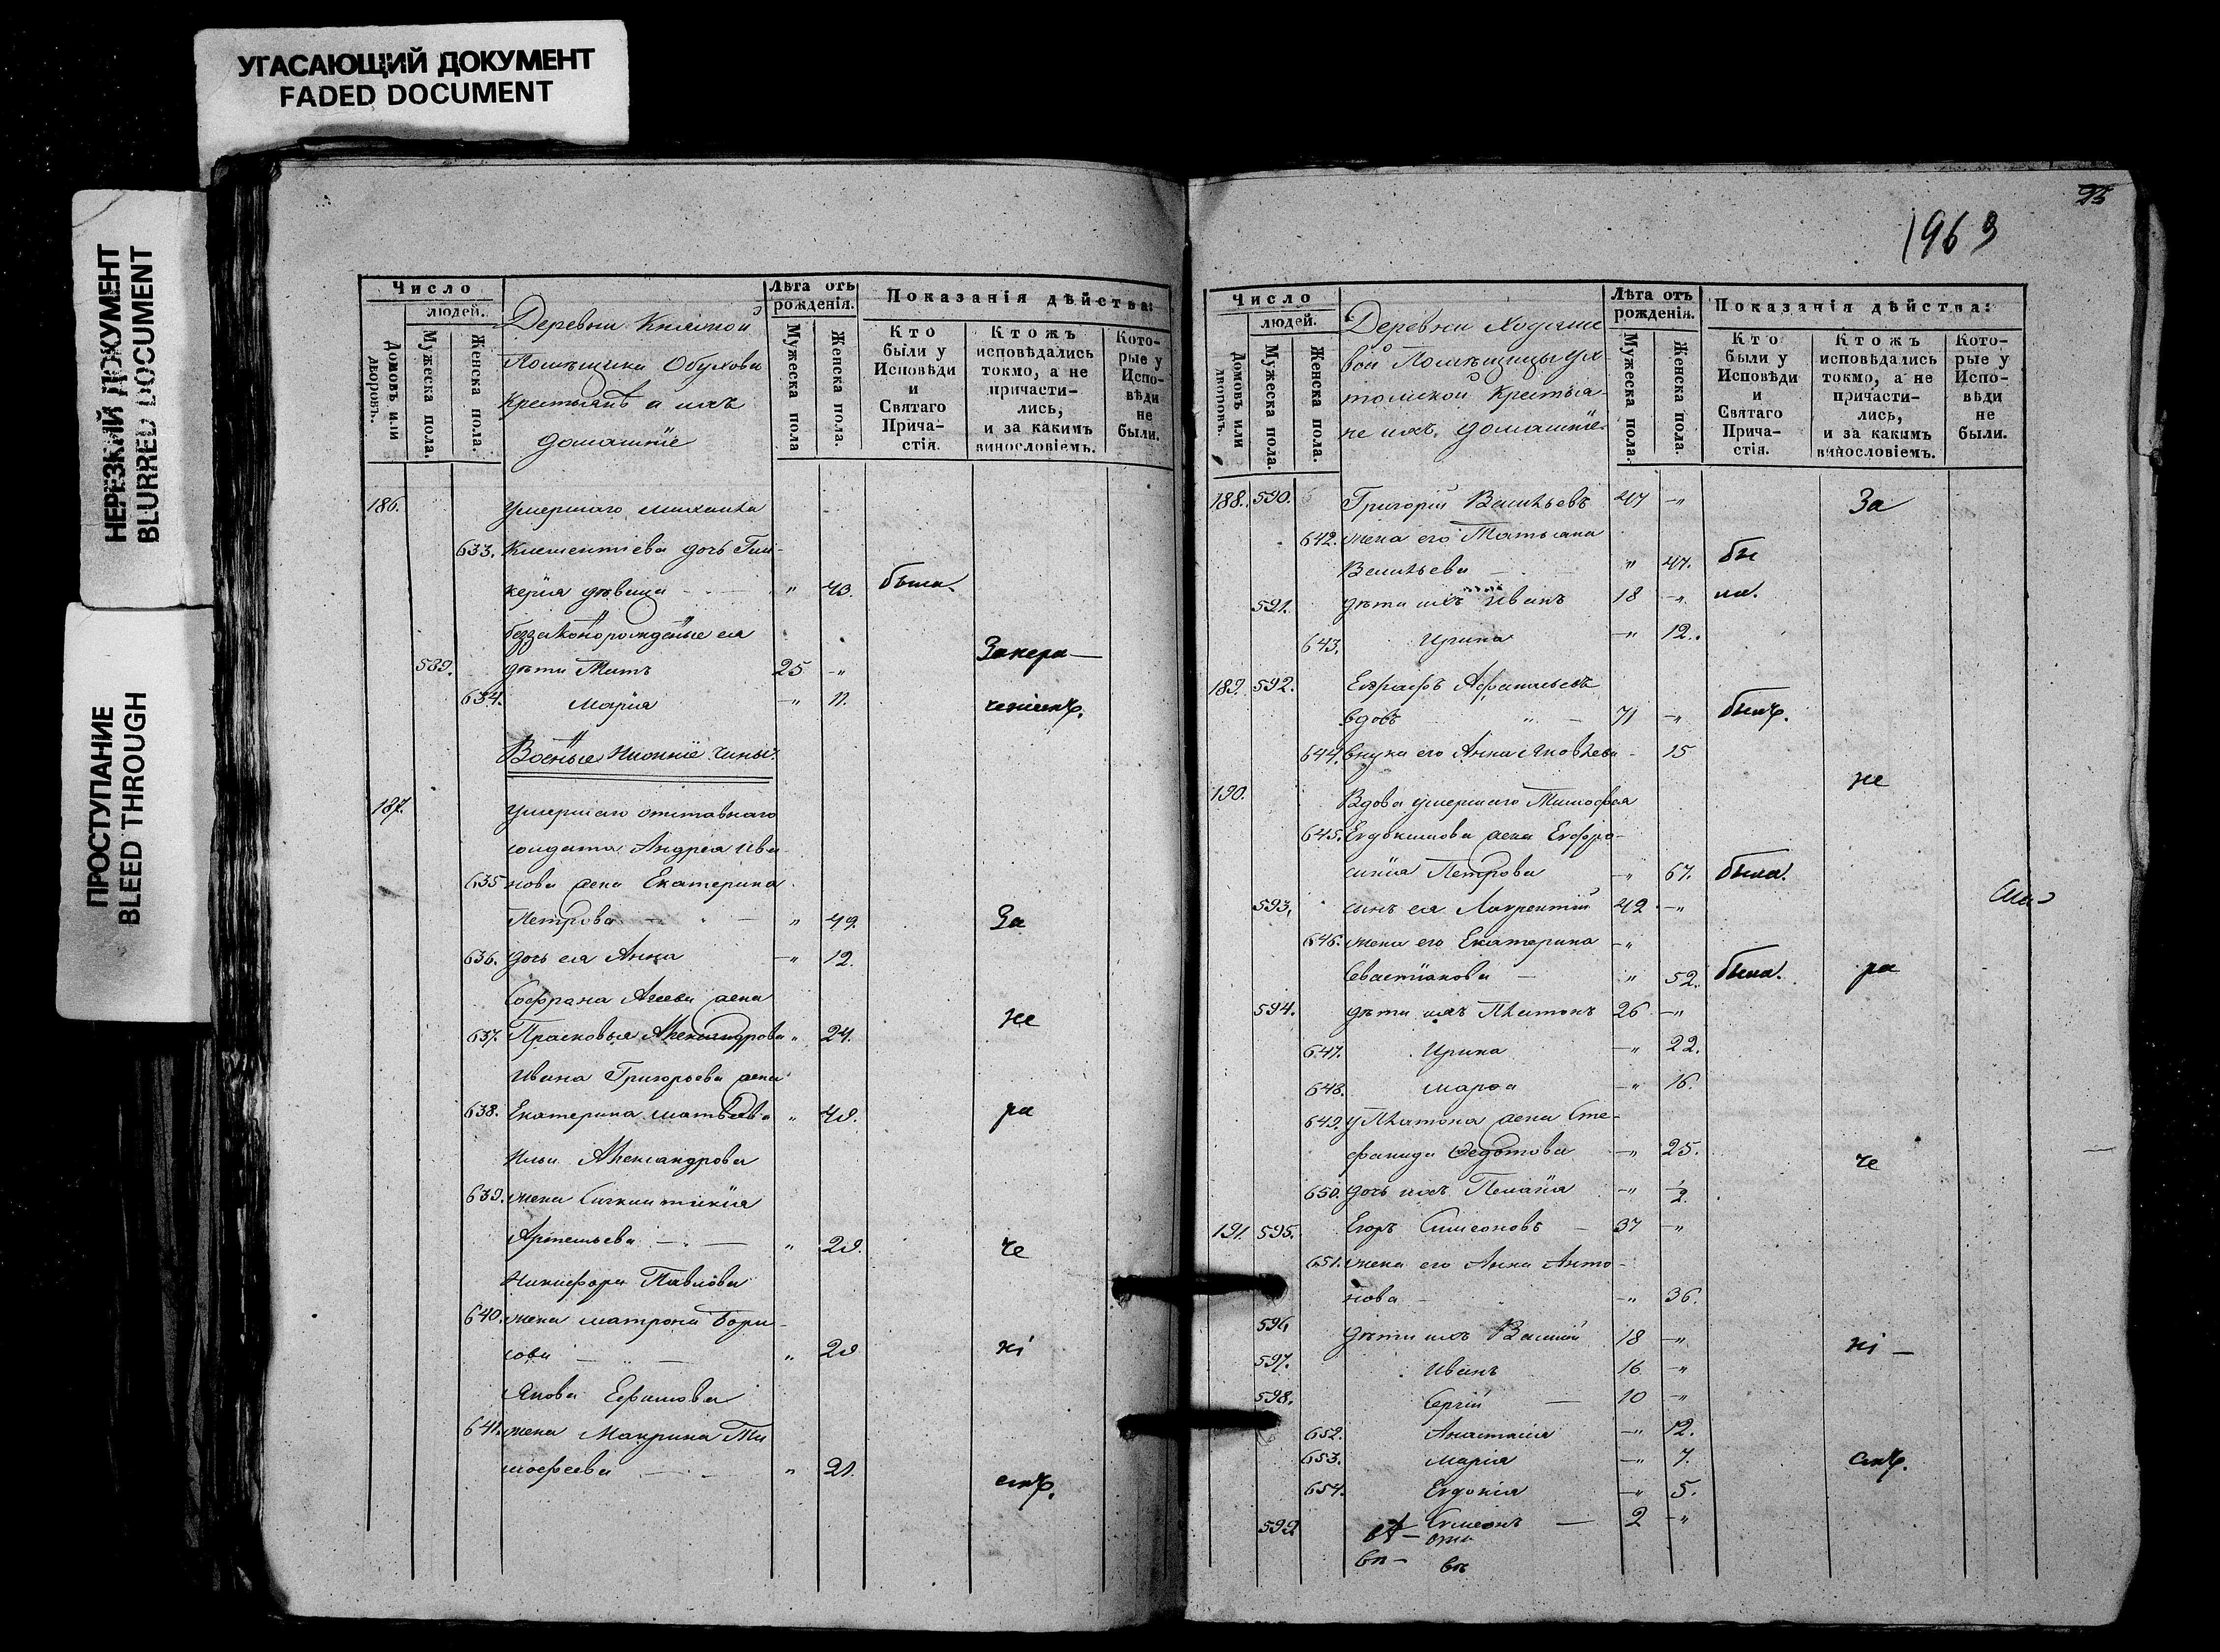 УГАСАЮЩИЙ ДОКУМЕНТ
FADED DOCUMENT
НЕРЕЗКИЙ ДОКУМЕНТ
BLURRED DOCUMENT
ПРОСТУПАНИЕ
BLEED THROUGH
Число
людей.
Домовъ или дворовъ.
Мужеска пола.
Женска пола.
Деревни
Помѣщика Обухова
Крестьянѣ и ихъ
домашніе
Лѣта отъ рожденія.
Мужеска пола
Женска пола.
Показанія дѣйства:
Кто были у Исповѣди и Святаго Прича-стія.
Ктожъ исповѣдались токмо, а не причасти-лись, и за какимъ винословіемъ.
Кото-рые у Испо-вѣди не были.
186. умершаго Михаила
633. Климентіева дочь Гли-
керія дѣвица " 40. была.
беззаконорожденые ея
589. дѣти Титъ 25 -"
634. Марія -" 11.
Военые Нижніе чины.
187. умершаго отставнаго
солдата Андрея Ива-
635 нова жена Екатерина
Петрова " 49. За
636. дочь ея Анна -" 12.
Софрана Агеева жена
не
637. Прасковья Александрова " 24.
Ивана Григорьева жена
638. Екатерина Матвѣева " 49. ра
Ильи Александрова
639. жена
Артемьева " 29. че
Никифора Павлова
640. жена Матрона Бори-
сова " 29 ні
Якова Ефимова
641. жена Макрина Ти
мофеева " 21.
емъ.
95
1963
Число
людей.
Домовъ или дворовъ.
Мужеска пола.
Женска пола.
Деревни Ходяше
вой Помѣщицы Ух
томской Крестья-
не ихъ домашніе
Лѣта отъ рожденія.
Мужеска пола.
Женска пола.
Показанія дѣйства:
Кто были у Исповѣди и Святаго Прича-стія.
Ктожъ исповѣдались токмо, а не причасти-лись, и за какимъ винословіемъ.
Кото-рые у Испо-вѣди не были.
188. 590. Григорій Васильевъ 47 -" За
642. жена его Татьяна
Васильева " 47. бы
591. дѣти ихъ Иванъ 18 -" ли.
643. Ирина -" 12.
189. 592. Евграфъ Афанасьевъ
вдовъ 71 -" былъ.
644. внука его Анна Яковлева - 15
не
190. Вдова умершаго Тимофея
645. Евдокимова жена Евфро-
синія Петрова -" 67. была.
593. сынъ ея Лаврентій 42 -"
646. жена его Екатерина -"
Севастіанова " 52. была. ра
594. дѣти ихъ Платонъ 26 -"
647. Ирина -" 22.
648. Марѳа -" 16.
649. у Платона жена Сте-
фанида Федотова -" 25. че
650. дочь ихъ Пелагія -" ½.
191. 595. Егоръ Симеоновъ 37 -"
651. жена его Анна Анто-
нова -" 36.
596 дѣти ихъ Василій 18 -" ні
597. Иванъ 16 -"
598. Сергій 10 -"
652. Анастасія -" 12.
653. Марія -" 7. емъ.
654. Евдокія -" 5.
599 Симеонъ 2 -"